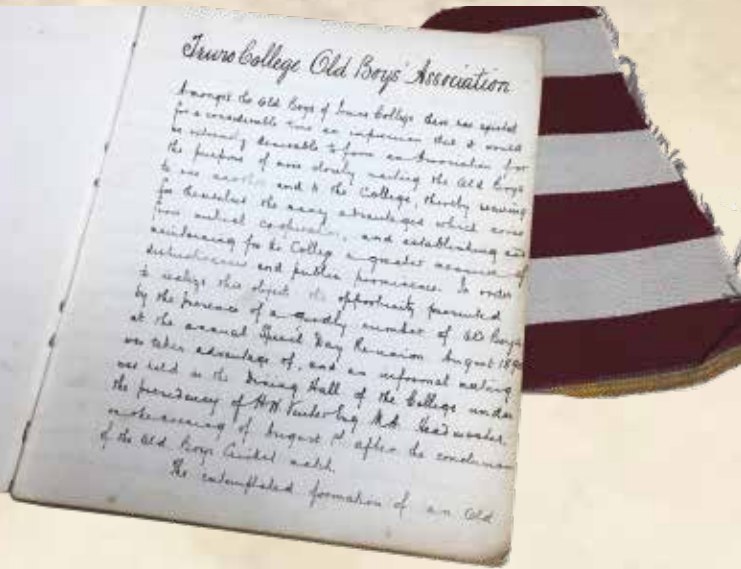 Truro College Old Boys' Association
Amongst the Old Boys of Truro College there has existed
for a considerable time an impression that it would
be extremely desirable to form an Association for
the purpose of more closely uniting the Old Boys
to one another and to the College, thereby securing
for themselves the many advantages which come
from mutual cooperation, and establishing and
maintaining for the College a greater measure of
distinctiveness and public prominence. In order
to realize this object the opportunity presented
by the presence of a goodly number of Old Boys
at the annual Speech Day Reunion August
was taken advantage of, and an informal meeting
was held in the Dining Hall of the College under
the presidency of H H Vinter Esq M.A. Headmaster,
on the evening of August 1st after the conclusion
of the Old Boys Cricket match.
The contemplated formation of an Old